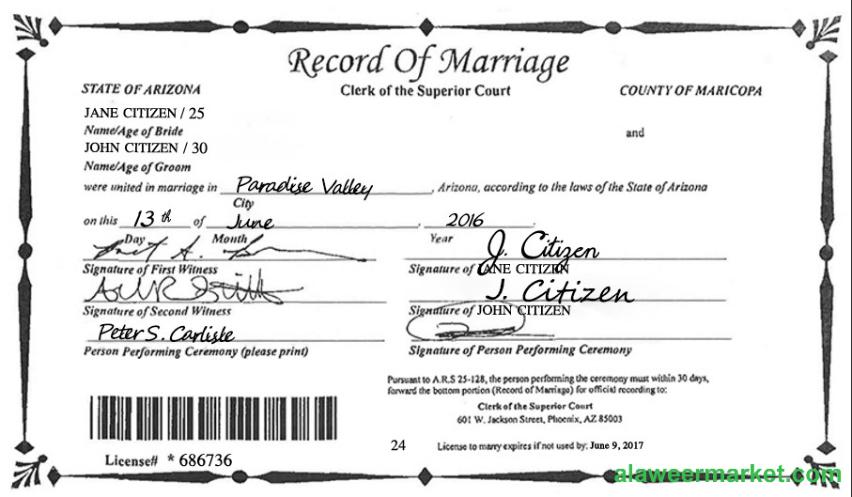 Record Of Marriage
STATE OF ARIZONA Clerk of the Superior Court COUNTY OF MARICOPA
JANE CITIZEN / 25
Name/Age of Bride and
JOHN CITIZEN / 30
Name/Age of Groom
were united in marriage in Paradise Valley, Arizona, according to the laws of the State of Arizona
City
on this 13th of June, 2016.
Day Month Year
J. Citizen
Signature of First Witness Signature of JANE CITIZEN
J. Citizen
Signature of Second Witness Signature of JOHN CITIZEN
Peter S. Carlisle
Person Performing Ceremony (please print) Signature of Person Performing Ceremony
Pursuant to A.R.S 25-128, the person performing the ceremony must within 30 days,
forward the bottom portion (Record of Marriage) for official recording to:
Clerk of the Superior Court
601 W. Jackson Street, Phoenix, AZ 85003
24 License to marry expires if not used by: June 9, 2017
License# * 686736
alaweermarket.com